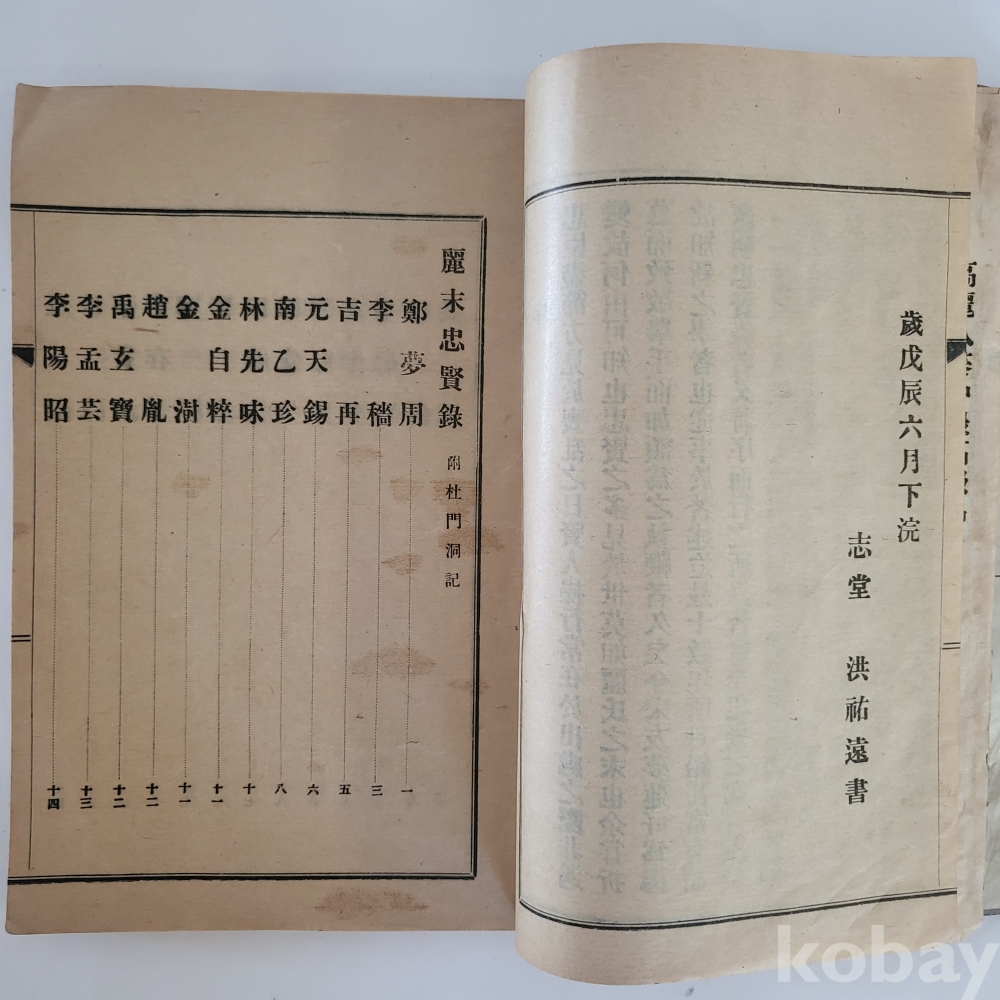 歲戊辰六月下浣
志堂 洪祐遠書
麗末忠賢錄 附杜門洞記
鄭夢周 一
李穡 三
吉再 五
元天錫 六
南乙珍 八
林先味 十
金自粹 十一
金澍 十一
趙胤 十二
禹玄寶 十二
李孟芸 十三
李陽昭 十四
kobay